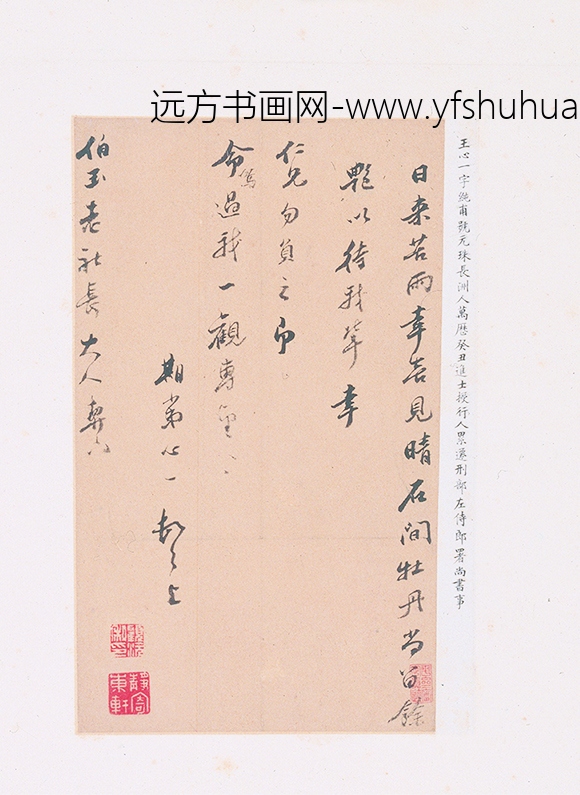 远方书画网-www.yfshuhua
王心一字純甫號元珠長洲人萬曆癸丑進士授行人累遷刑部左侍郎署尚書事
日來苦雨幸喜見晴石間牡丹尚留餘
艷以待我輩幸
仁兄勿負之即
命駕過我一觀專望
期弟心一頓首上
伯玉老社長大人
靜寄
東軒